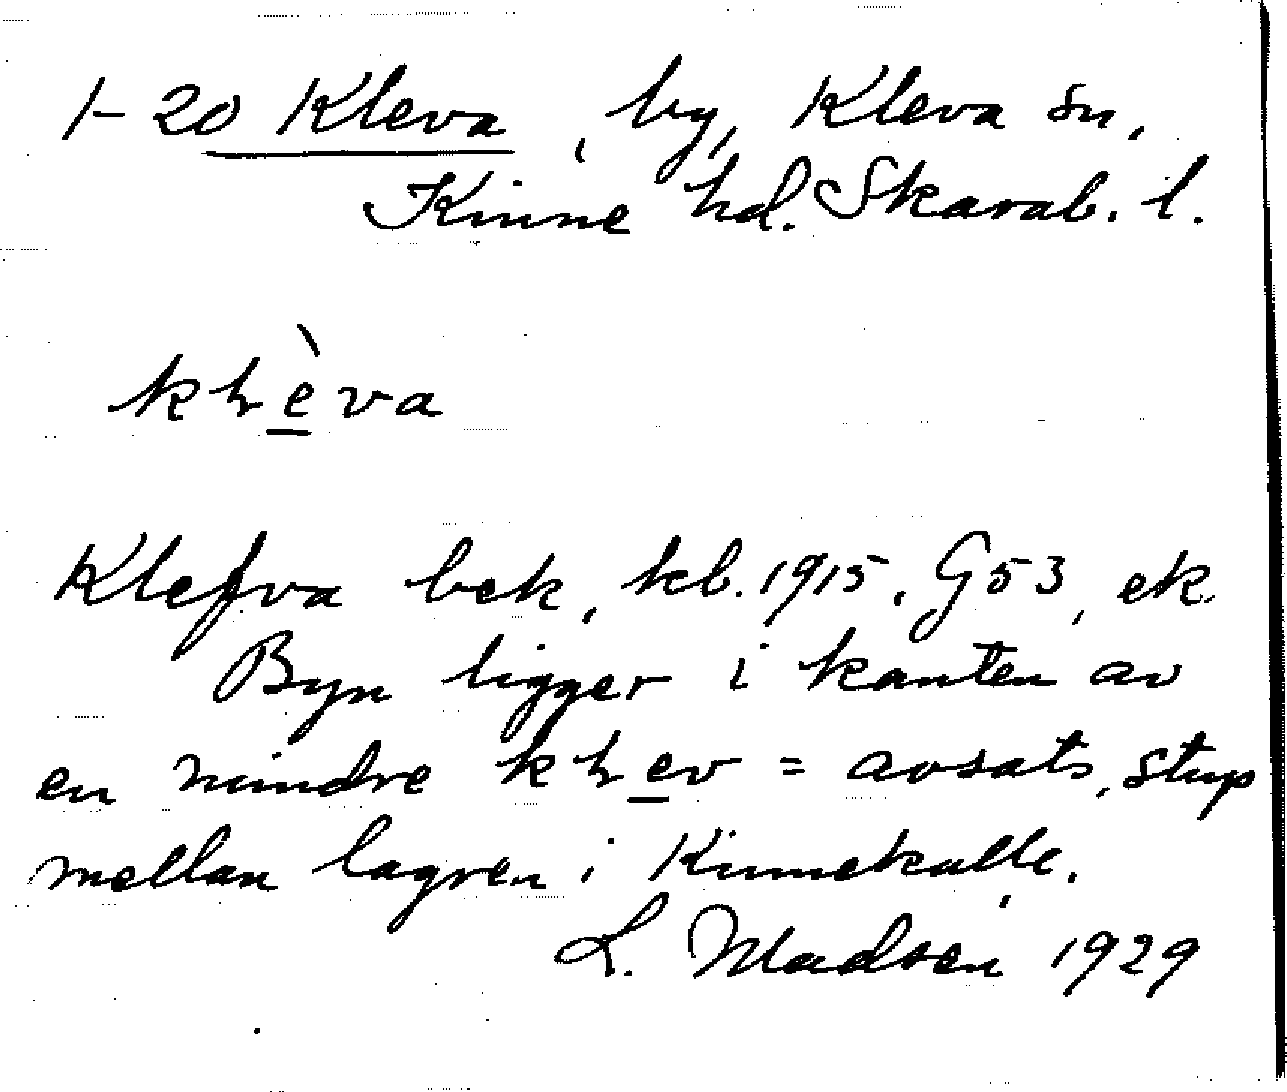 1-20 Kleva, by, Kleva sn,
Kinne hd. Skarab. l.
klèva
Klefva bek, kb. 1915. G53, ek
Byn ligger i kanten av
en mindre klev = avsats, stup
mellan lagren i Kinnekulle.
L. Madsen 1929